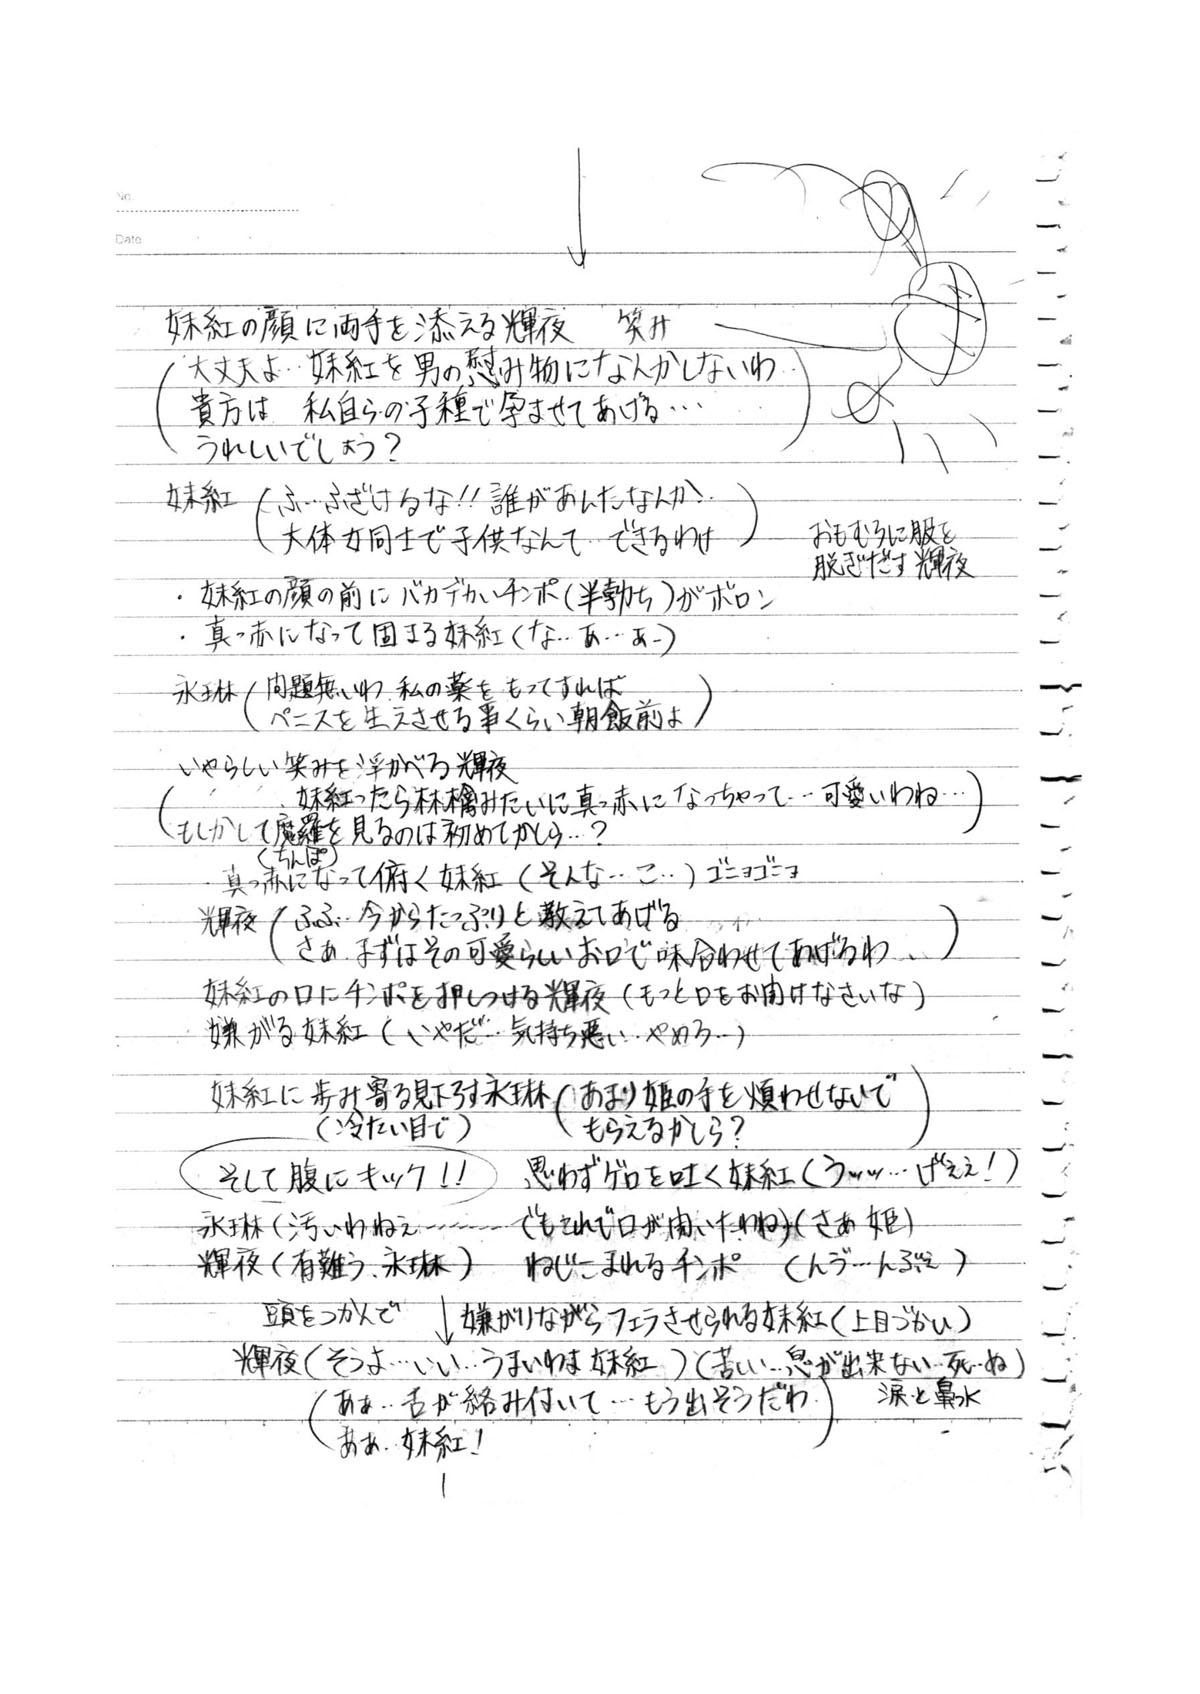 No.
Date
妹紅の顔に両手を添える輝夜　笑み
(大丈夫よ…妹紅を男の慰み物になんかしないわ…
貴方は　私自らの子種で孕ませてあげる…
うれしいでしょう?)
妹紅(ふ…ふざけるな!!誰があんたなんか…
大体女同士で子供なんて…できるわけ)
おもむろに服を
脱ぎだす輝夜
・妹紅の顔の前にバカデカいチンポ(半勃ち)がボロン
・真っ赤になって固まる妹紅(な…あ…あー)
永琳(問題無いわ 私の薬をもってすれば
ペニスを生えさせる事くらい朝飯前よ)
いやらしい笑みを浮かべる輝夜
(妹紅ったら林檎みたいに真っ赤になっちゃって…可愛いわね…
もしかして魔羅を見るのは初めてかしら…?)
(ちんぽ)
・真っ赤になって俯く妹紅(そんな…こ…)ゴニョゴニョ
輝夜(ふふ…今からたっぷりと教えてあげる
さあ まずはその可愛らしいお口で味合わせてあげるわ、、)
妹紅の口にチンポを押しつける輝夜(もっと口をお開けなさいな)
嫌がる妹紅(いやだ…気持ち悪い…やめろ…)
妹紅に歩み寄る見下ろす永琳(あまり姫の手を煩わせないで
(冷たい目で)　もらえるかしら?)
そして腹にキック!!　思わずゲロを吐く妹紅(うッッ…げぇぇ!)
永琳(汚いわねぇ……　でもこれで口が開いたわね)(さあ 姫)
輝夜(有難う、永琳)　ねじこまれるチンポ　(んぅ゛…んぶぇ)
頭をつかんで　↓嫌がりながらフェラさせられる妹紅(上目づかい)
輝夜(そうよ…いい…うまいわよ妹紅)(苦しい…息が出来ない…死…ぬ)
(あぁ…舌が絡み付いて…もう出そうだわ　涙と鼻水
ああ…妹紅!)